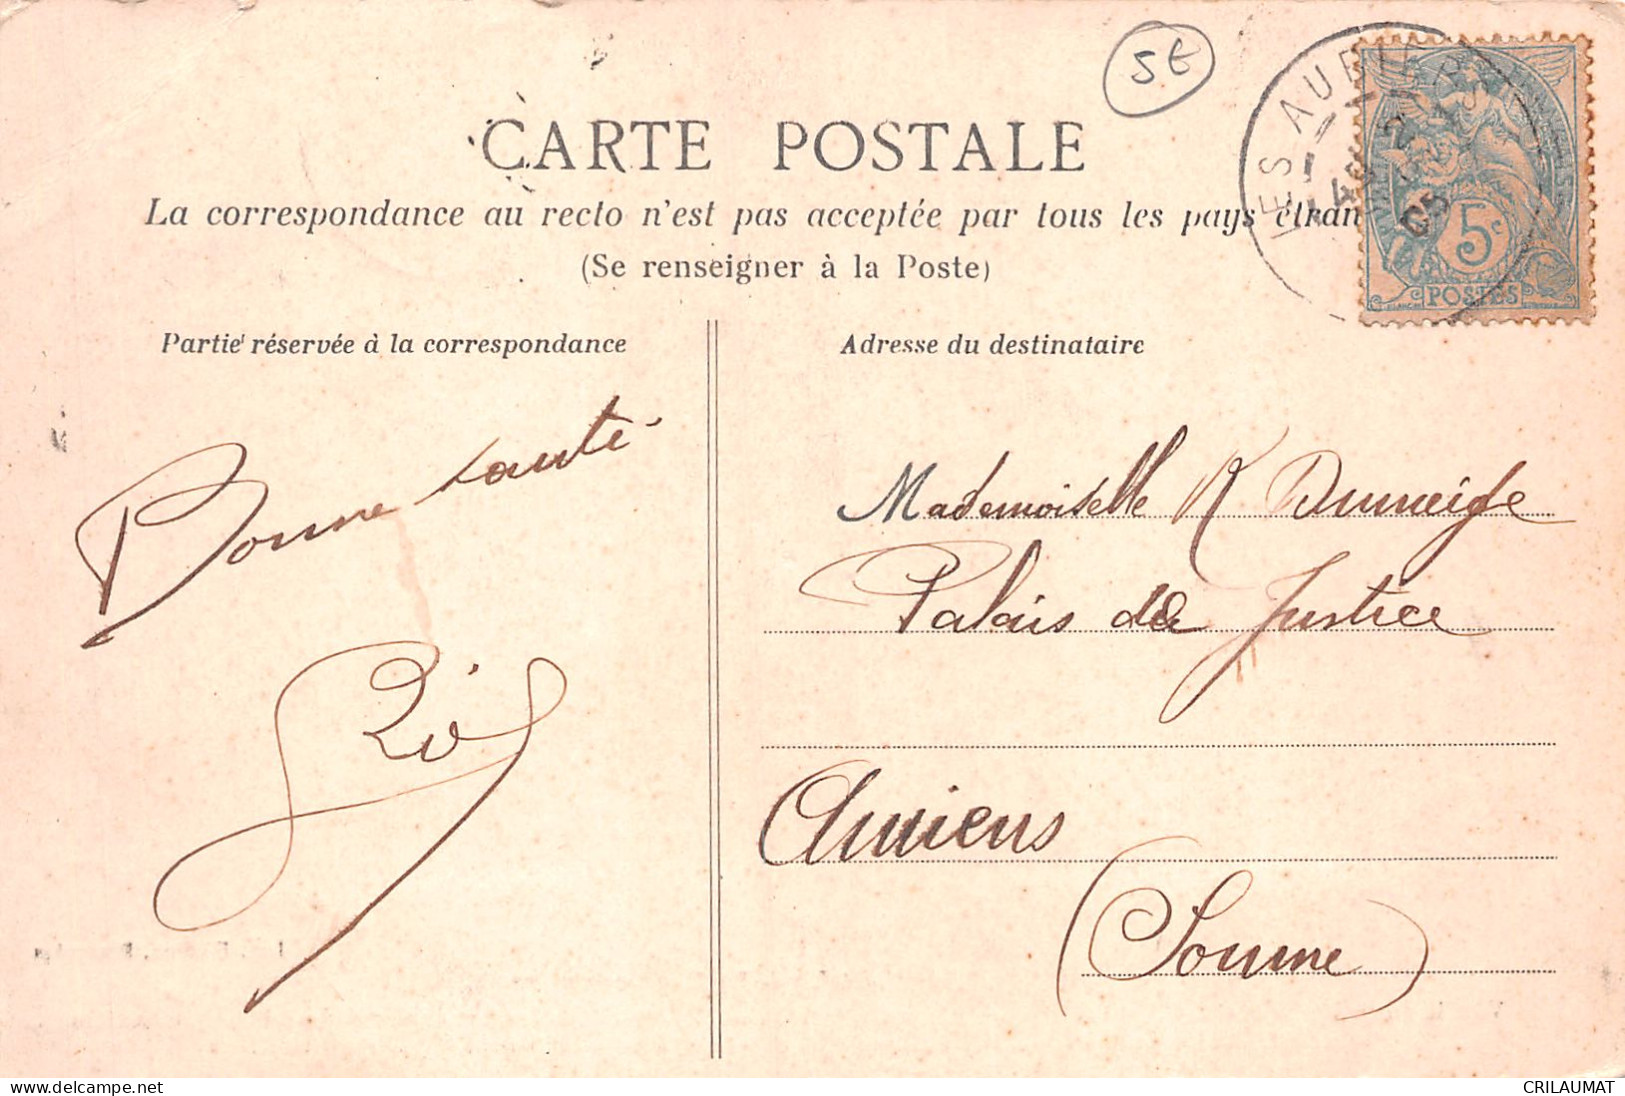 5€
CARTE POSTALE
La correspondance au recto n'est pas acceptée par tous les pays étran
(Se renseigner à la Poste)
Partie réservée à la correspondance
Adresse du destinataire
5c
POSTES
05
Bonne santé
Mademoiselle R Dumeige
Palais de Justice
Amiens
(Somme)
www.delcampe.net
CRILAUMAT